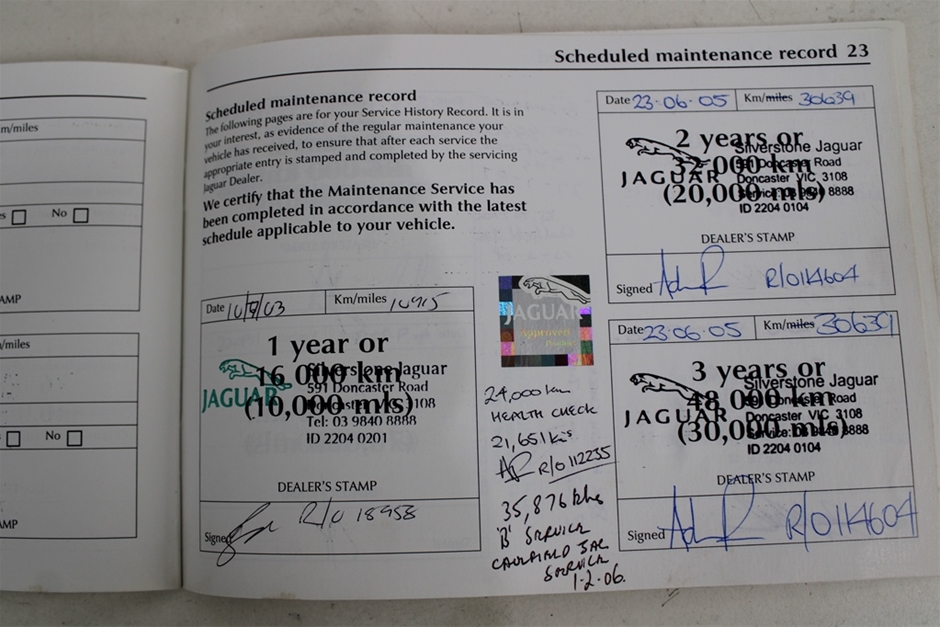 Scheduled maintenance record 23
m/miles
s No
AMP
/miles
No
AMP
Scheduled maintenance record
The following pages are for your Service History Record. It is in
your interest, as evidence of the regular maintenance your
vehicle has received, to ensure that after each service the
appropriate entry is stamped and completed by the servicing
Jaguar Dealer.
We certify that the Maintenance Service has
been completed in accordance with the latest
schedule applicable to your vehicle.
Date Km/miles 10915
1 year or
16 000 km
(10,000 mls)
JAGUAR
Silverstone Jaguar
591 Doncaster Road
Doncaster VIC 3108
Tel: 03 9840 8888
ID 2204 0201
DEALER'S STAMP
Signed R/O 18958
JAGUAR
Approved
24,000 km
HEALTH CHECK
21,651 km's
R/O 112235
35,876 kms
'B' SERVICE
CAULFIELD JAG
SERVICE
1-2-06.
Date 23-06-05 Km/miles 30639
2 years or
000 km
(20,000 mls)
JAGUAR
Silverstone Jaguar
591 Doncaster Road
Doncaster VIC 3108
Service: 03 9840 8888
ID 2204 0104
DEALER'S STAMP
Signed R/O114604
Date 23-06-05 Km/miles 30639
3 years or
48 000 km
(30,000 mls)
JAGUAR
Silverstone Jaguar
591 Doncaster Road
Doncaster VIC 3108
Service: 03 9840 8888
ID 2204 0104
DEALER'S STAMP
Signed R/O114604